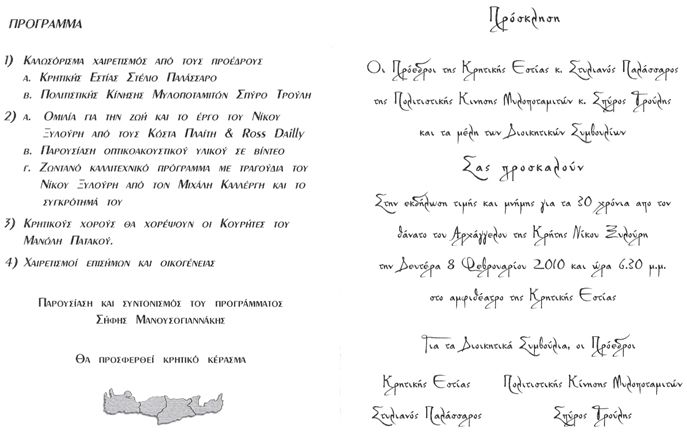 ΠΡΟΓΡΑΜΜΑ
1) ΚΑΛΩΣΟΡΙΣΜΑ ΧΑΙΡΕΤΙΣΜΟΣ ΑΠΟ ΤΟΥΣ ΠΡΟΕΔΡΟΥΣ
Α. ΚΡΗΤΙΚΗΣ ΕΣΤΙΑΣ ΣΤΕΛΙΟ ΠΑΛΑΣΣΑΡΟ
Β. ΠΟΛΙΤΙΣΤΙΚΗΣ ΚΙΝΗΣΗΣ ΜΥΛΟΠΟΤΑΜΙΤΩΝ ΣΠΥΡΟ ΤΡΟΥΛΗ
2) Α. ΟΜΙΛΙΑ ΓΙΑ ΤΗΝ ΖΩΗ ΚΑΙ ΤΟ ΕΡΓΟ ΤΟΥ ΝΙΚΟΥ
ΞΥΛΟΥΡΗ ΑΠΟ ΤΟΥΣ ΚΩΣΤΑ ΠΛΑΪΤΗ & ROSS DAILLY
Β. ΠΑΡΟΥΣΙΑΣΗ ΟΠΤΙΚΟΑΚΟΥΣΤΙΚΟΥ ΥΛΙΚΟΥ ΣΕ ΒΙΝΤΕΟ
Γ. ΖΩΝΤΑΝΟ ΚΑΛΛΙΤΕΧΝΙΚΟ ΠΡΟΓΡΑΜΜΑ ΜΕ ΤΡΑΓΟΥΔΙΑ ΤΟΥ
ΝΙΚΟΥ ΞΥΛΟΥΡΗ ΑΠΟ ΤΟΝ ΜΙΧΑΛΗ ΚΑΛΛΕΡΓΗ ΚΑΙ ΤΟ
ΣΥΓΚΡΟΤΗΜΑ ΤΟΥ
3) ΚΡΗΤΙΚΟΥΣ ΧΟΡΟΥΣ ΘΑ ΧΟΡΕΨΟΥΝ ΟΙ ΚΟΥΡΗΤΕΣ ΤΟΥ
ΜΑΝΟΛΗ ΠΑΤΑΚΟΥ.
4) ΧΑΙΡΕΤΙΣΜΟΙ ΕΠΙΣΗΜΩΝ ΚΑΙ ΟΙΚΟΓΕΝΕΙΑΣ
ΠΑΡΟΥΣΙΑΣΗ ΚΑΙ ΣΥΝΤΟΝΙΣΜΟΣ ΤΟΥ ΠΡΟΓΡΑΜΜΑΤΟΣ
ΣΗΦΗΣ ΜΑΝΟΥΣΟΓΙΑΝΝΑΚΗΣ
ΘΑ ΠΡΟΣΦΕΡΘΕΙ ΚΡΗΤΙΚΟ ΚΕΡΑΣΜΑ
Πρόσκληση
Οι Πρόεδροι της Κρητικής Εστίας κ. Στυλιανός Παλάσσαρος
της Πολιτιστικής Κίνησης Μυλοποταμιτών κ. Σπύρος Τρούλης
και τα μέλη των Διοικητικών Συμβουλίων
Σας προσκαλούν
Στην εκδήλωση τιμής και μνήμης για τα 30 χρόνια απο τον
θάνατο του Αρχάγγελου της Κρήτης Νίκου Ξυλούρη
την Δευτέρα 8 Φεβρουαρίου 2010 και ώρα 6.30 μ.μ.
στο αμφιθέατρο της Κρητικής Εστίας
Για τα Διοικητικά Συμβούλια, οι Πρόεδροι
Κρητικής Εστίας Πολιτιστικής Κίνησης Μυλοποταμιτών
Στυλιανός Παλάσσαρος Σπύρος Τρούλης